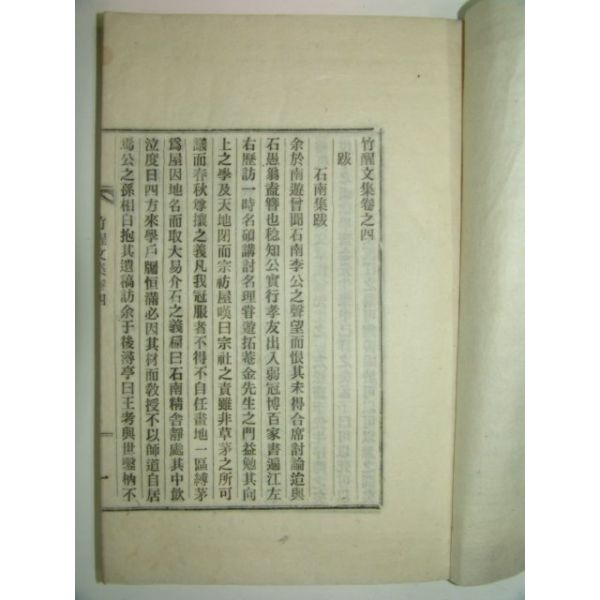 竹醒文集卷之四
跋
石南集跋
余於南遊曾聞石南李公之聲望而恨其未得合席討論迨與
石愚翁盍簪也稔知公實行孝友出入弱冠博百家書遍江左
右歷訪一時名碩講討名理晷遊拓菴金先生之門益勉其向
上之學及天地閉而宗祊屋嘆曰宗社之責雖非草茅之所可
議而春秋尊攘之義凡我冠服者不得不自任畫地一區縛茅
爲屋因地名而取大易介石之義扁曰石南精舍靜處其中飮
泣度日四方來學戶屨恒滿必因其材而敎授不以師道自居
焉公之孫相白抱其遺稿訪余于後潭亭曰王考與世鑿枘不
竹醒文集卷四
一